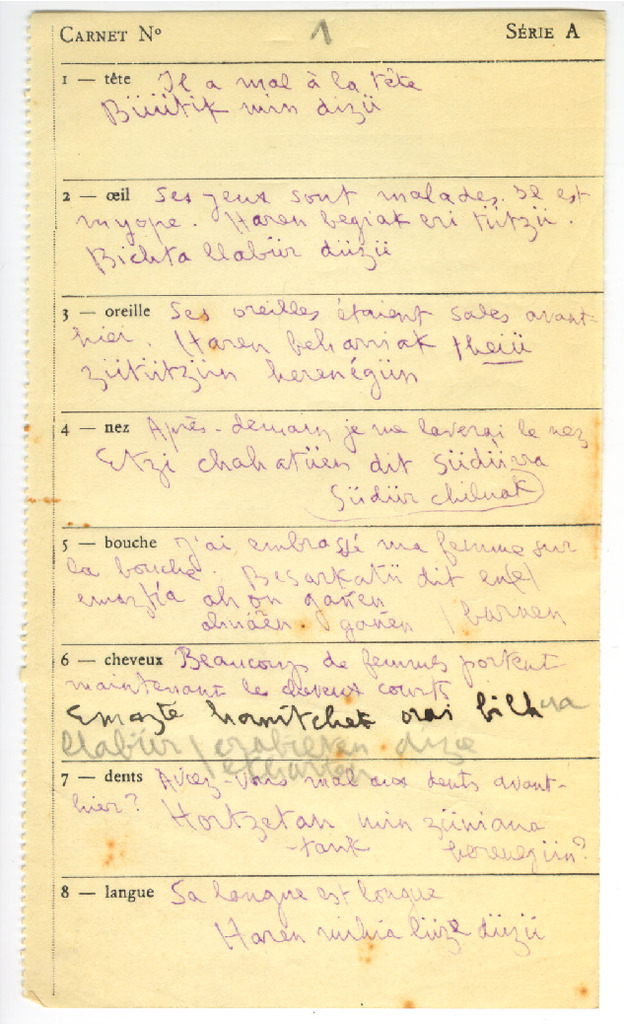 CARNET Nº 1 SÉRIE A
1 — tête Il a mal à la tête
Büütik min dizü
2 — œil Ses yeux sont malades. Il est
myope. Haren begiak eri tützü.
Bichta llabür düzü
3 — oreille Ses oreilles étaient sales avant-
hier. Haren beharriak theiü
zütützün herenégün
4 — nez Après-demain je me laverai le nez
Etzi chahatüen dit südürra
südür chiluak
5 — bouche J'ai embrassé ma femme sur
la bouche. Besarkatü dit ene
emaztia ahon gañen
ahuáen gañen / barnen
6 — cheveux Beaucoup de femmes portent
maintenant les cheveux courts
Emazte hornitchek orai bilhua
llabür / erabilten dize
7 — dents Aviez-vous mal aux dents avant-
hier? Hortzetan min züniana
-tarik herenegün?
8 — langue Sa langue est longue
Haren mihia lüze düzü